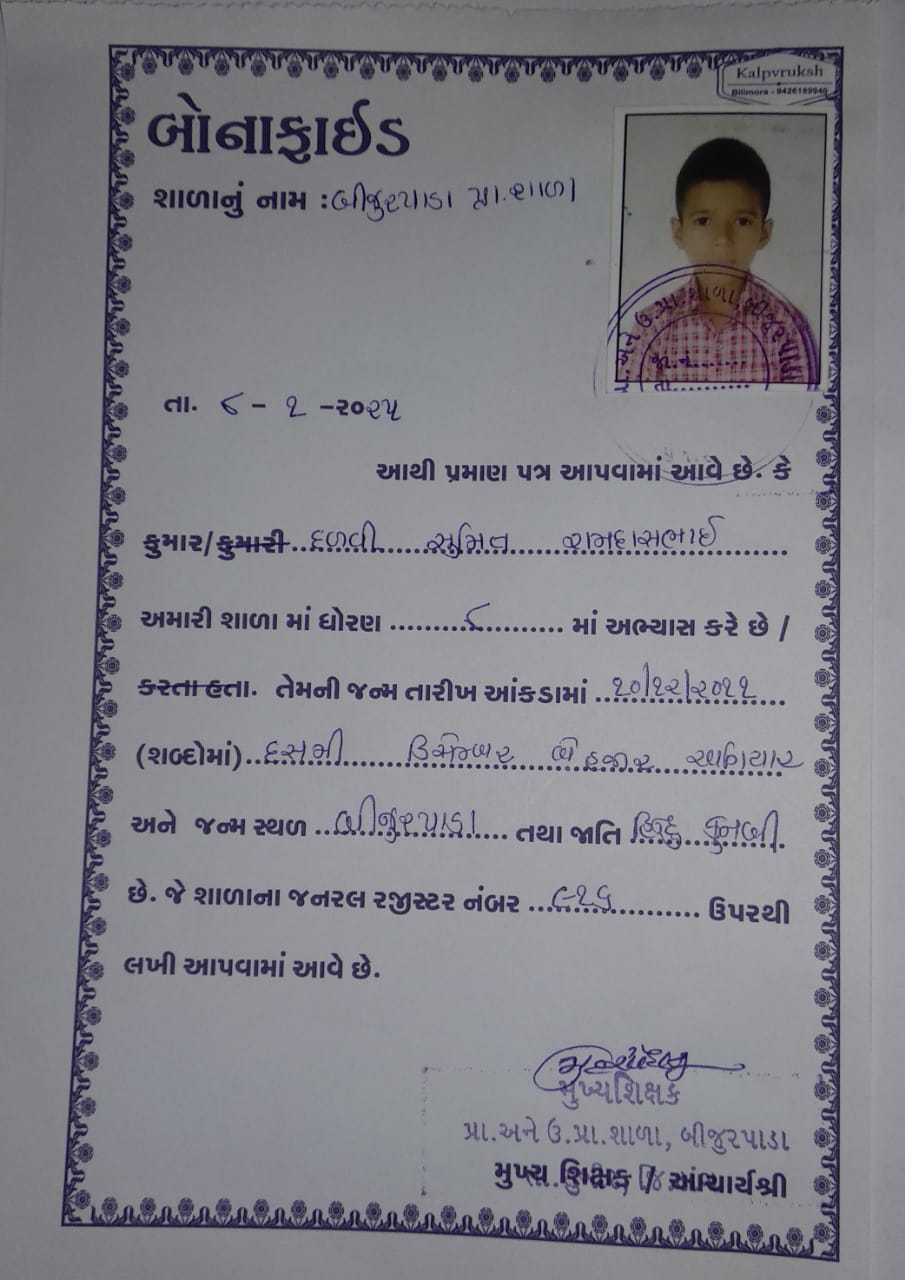 Kalpvruksh
Bilimora - 9426189940
બોનાફાઈડ
શાળાનું નામ : બીજુરપાડા પ્રા.શાળા
પ્રા. અને ઉ.પ્રા.શાળા, બીજુરપાડા
જા.નં.......
તા...........
તા. ૮ - ૨ -૨૦૨૫
આથી પ્રમાણ પત્ર આપવામાં આવે છે. કે
કુમાર/કુમારી..દળવી.....સુમિત......રામદાસભાઈ.......
અમારી શાળા માં ધોરણ .........૮.......... માં અભ્યાસ કરે છે /
કરતા હતા. તેમની જન્મ તારીખ આંકડામાં ..૧૦/૧૨/૨૦૧૧....
(શબ્દોમાં)..દસમી......ડિસેમ્બર....બે હજાર....અગિયાર
અને જન્મ સ્થળ ...બીજુરપાડા.... તથા જાતિ હિન્દુ...કુનબી.
છે. જે શાળાના જનરલ રજીસ્ટર નંબર ...૯૧૬........... ઉપરથી
લખી આપવામાં આવે છે.
મુખ્યશિક્ષક
પ્રા.અને ઉ.પ્રા.શાળા, બીજુરપાડા
મુખ્ય શિક્ષક / આચાર્યશ્રી